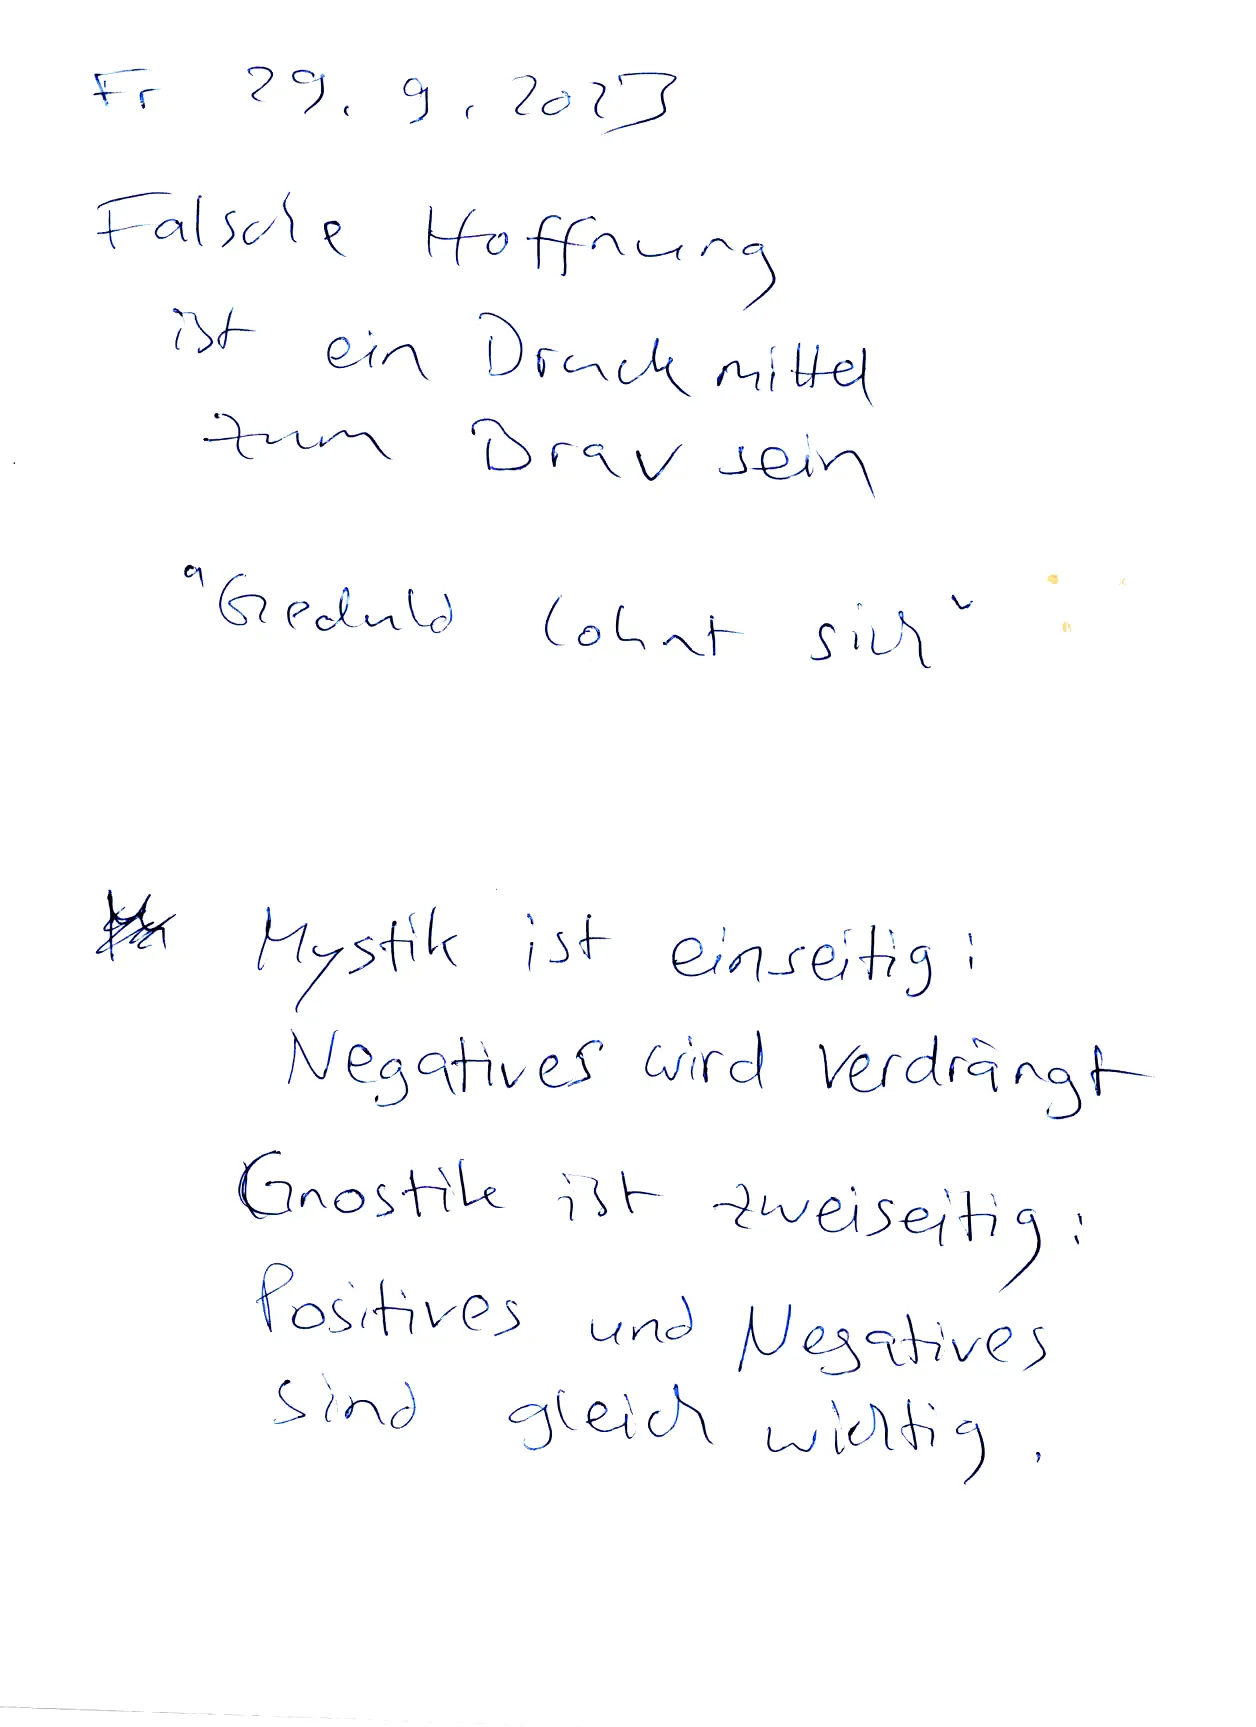 Fr 29. 9. 2023
Falsche Hoffnung
ist ein Druckmittel
zum Bravsein
"Geduld lohnt sich"
Mystik ist einseitig:
Negatives wird verdrängt
Gnostik ist zweiseitig:
Positives und Negatives
sind gleich wichtig.